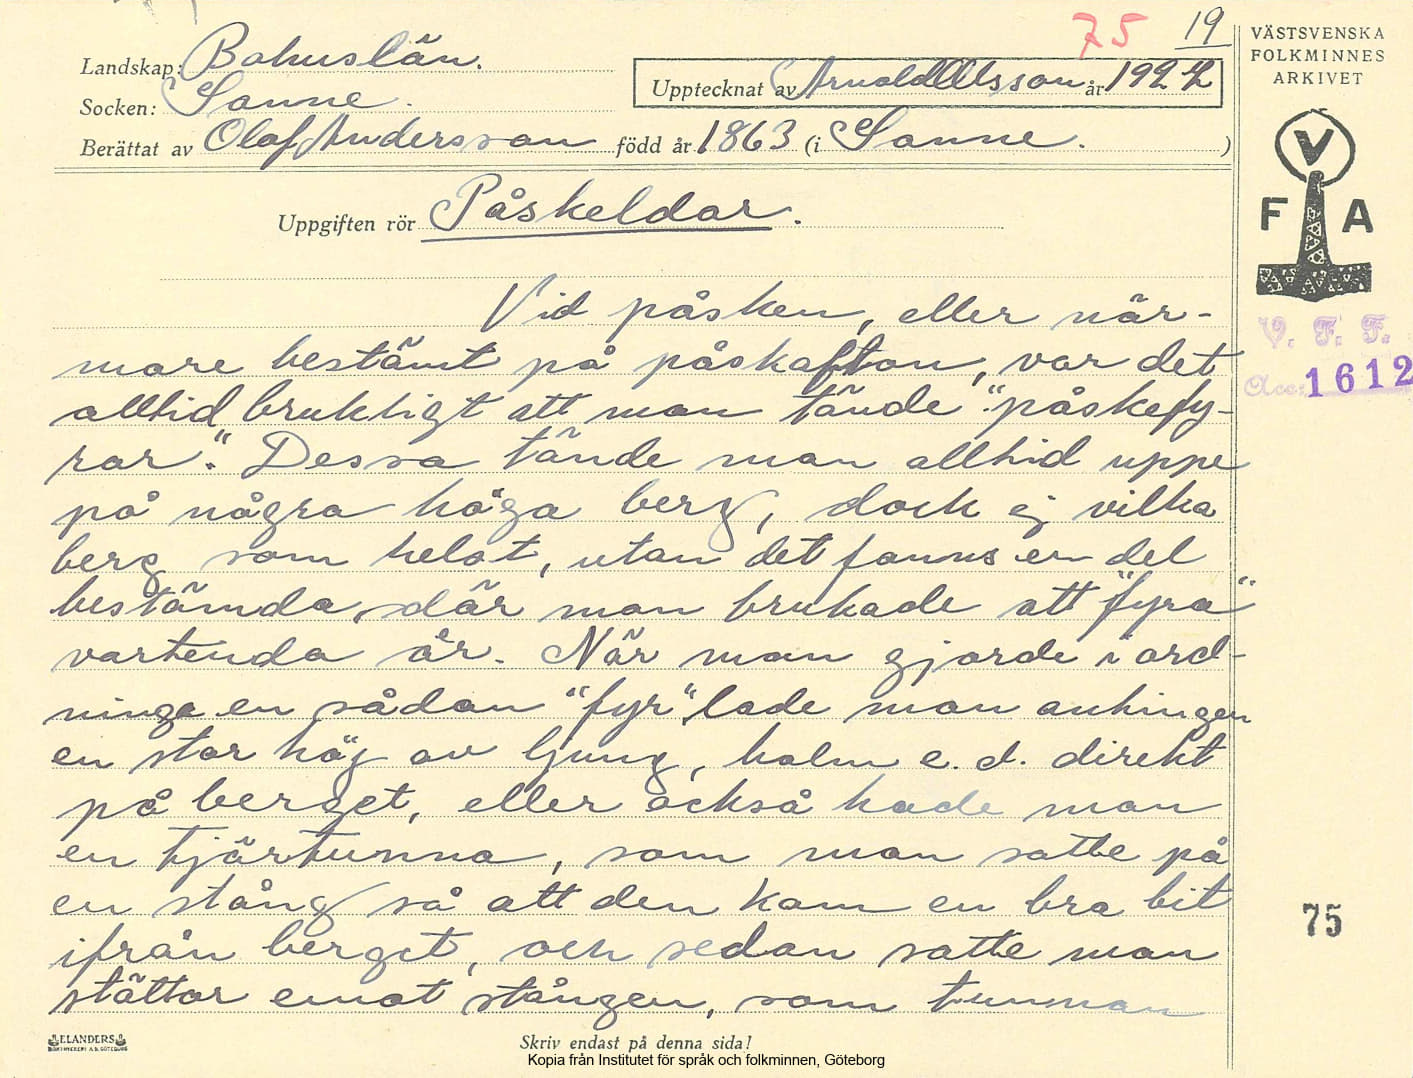 75 19
Landskap: Bohuslän.
Upptecknat av Arnold Olsson år 1927
Socken: Sanne.
Berättat av Olof Andersson född år 1863 (i Sanne. )
Uppgiften rör Påskeldar.
VÄSTSVENSKA
FOLKMINNES
ARKIVET
V
F A
V. F. F.
Acc: 1612
Vid påsken, eller när-
mare bestämt på påskafton, var det
alltid brukligt att man tände "påskefy-
rar". Dessa tände man alltid uppe
på några höga berg, dock ej vilka
berg som helst, utan det fanns en del
bestämda, där man brukade att "fyra"
vartenda år. När man gjorde i ord-
ninga en sådan "fyr", lade man antingen
en stor hög av ljung, halm e. d. direkt
på berget, eller också hade man
en tjärtunna, som man satte på
en stång så att den kom en bra bit
ifrån berget, och sedan satte man
stöttor emot stången, som tunnan
75
ELANDERS
BOKTRYCKERI A.B. GÖTEBORG
Skriv endast på denna sida!
Kopia från Institutet för språk och folkminnen, Göteborg